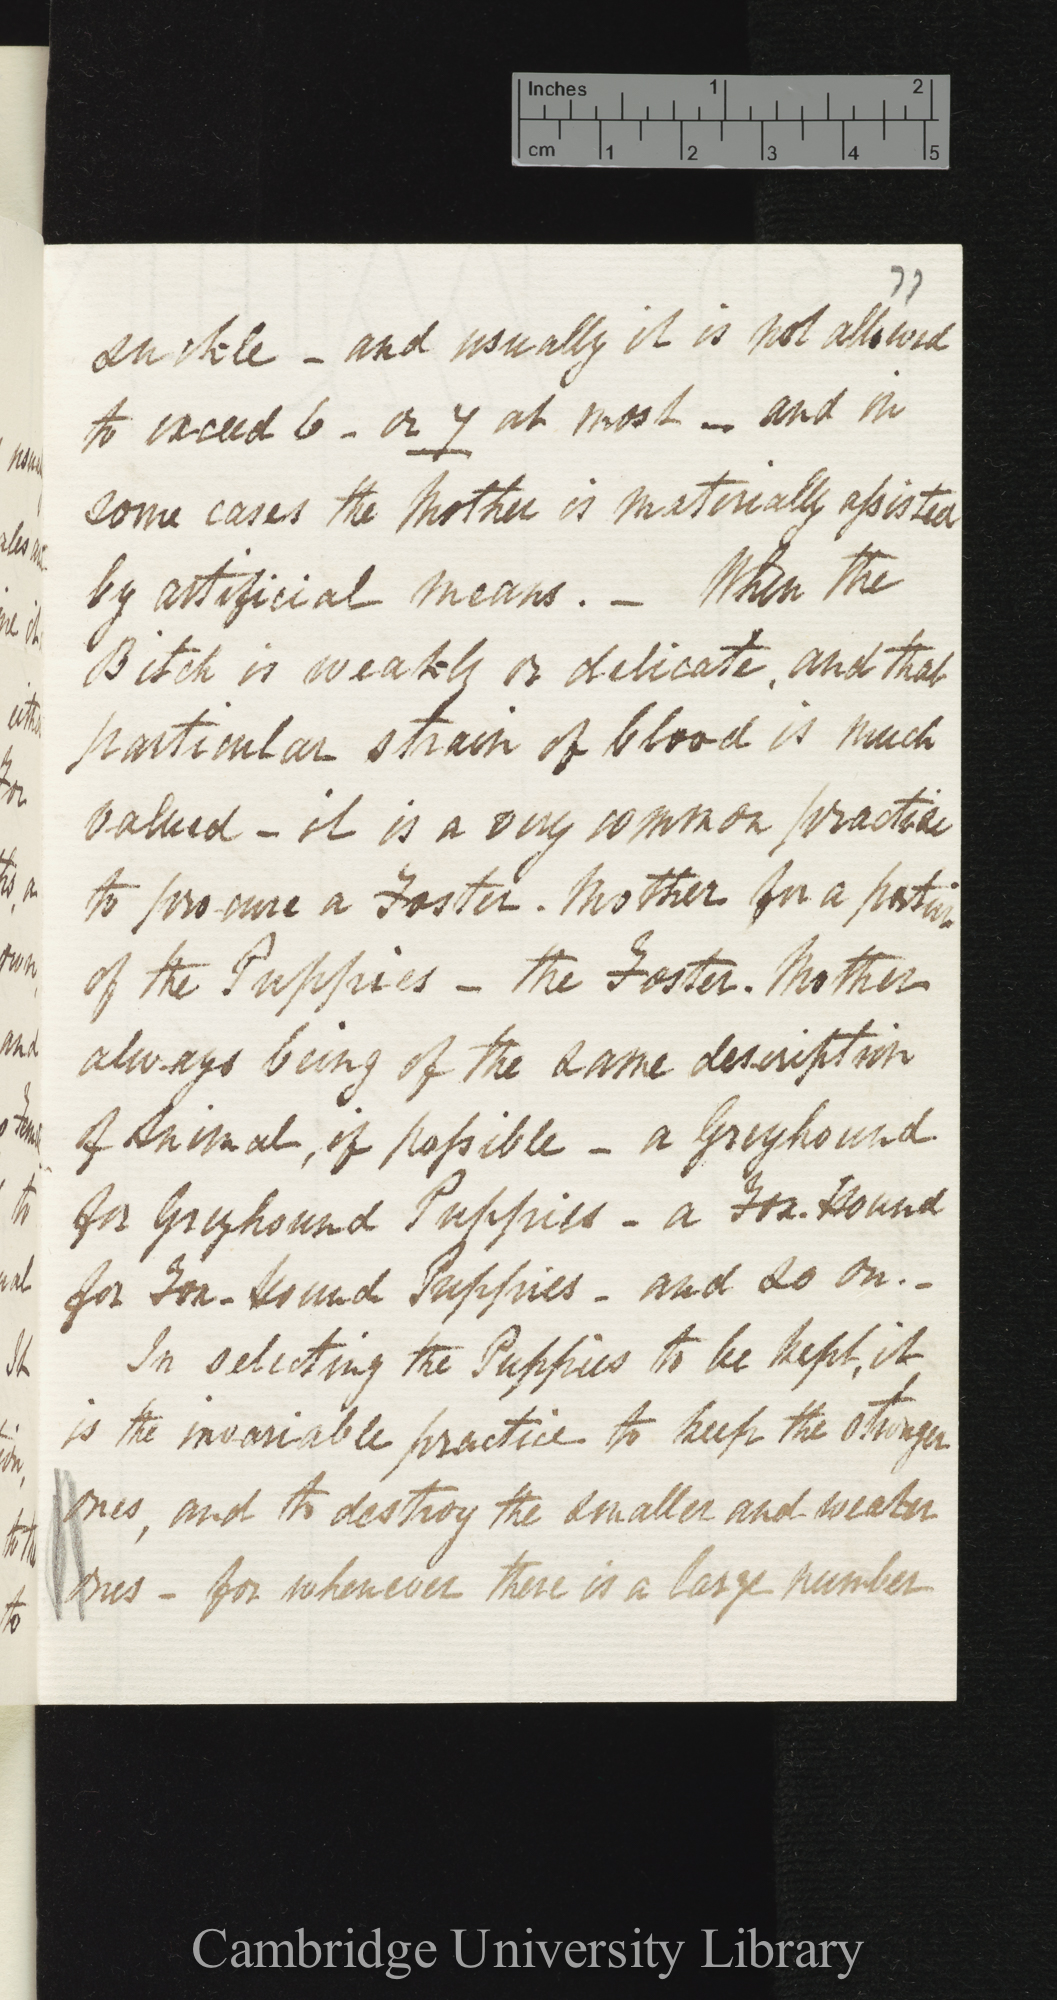 Inches 1 2
cm 1 2 3 4 5
77
suckle - and usually it is not allowed
to exceed 6 - or 7 at most - and in
some cases the Mother is materially assisted
by artificial means. - When the
Bitch is weakly or delicate, and that
particular strain of blood is much
valued - it is a very common practice
to procure a Foster-Mother for a portion
of the Puppies - the Foster-Mother
always being of the same description
of Animal, if possible - a Greyhound
for Greyhound Puppies - a Fox-Hound
for Fox-hound Puppies - and so on. -
In selecting the Puppies to be kept, it
is the invariable practice to keep the stronger
ones, and to destroy the smaller and weaker
ones - for whenever there is a large number
usual
and
to
It
to the
to
Cambridge University Library